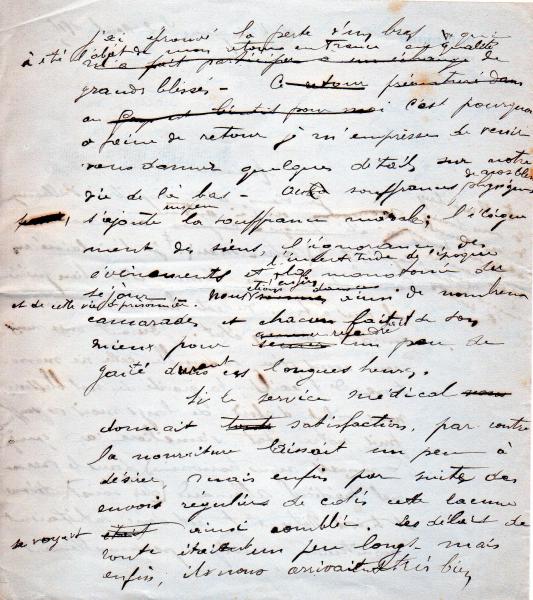 j'ai éprouvé la perte d'un bras que
à été l'objet de mon retour en France en qualité
m'a fait participer à un échange de
grands blessés - Ce retour prématuré dans
au
c'est pourquoi
à peine de retour je m'empresse de venir
vous donner quelques détails sur notre
vie de là bas - Aux souffrances physiques
s'ajoute la souffrance morale; l'éloigne
ment des siens, l'ignorance des
l'incertitude de l'époque
évènements et monotonie du
séjour
et de cette vie de prisonnier. nous étions ainsi de nombreux
camarades et chacun fait de son
mieux pour un peu de
gaité durant ces longues heures.
Si le service médical
donnait toute satisfaction, par contre
la nourriture laissait un peu à
désirer, mais enfin par suite des
envois réguliers de colis cette lacune
se voyait était ainsi comblée. Les délais de
route étaient un peu longs mais
enfin, ils nous arrivaient très bien